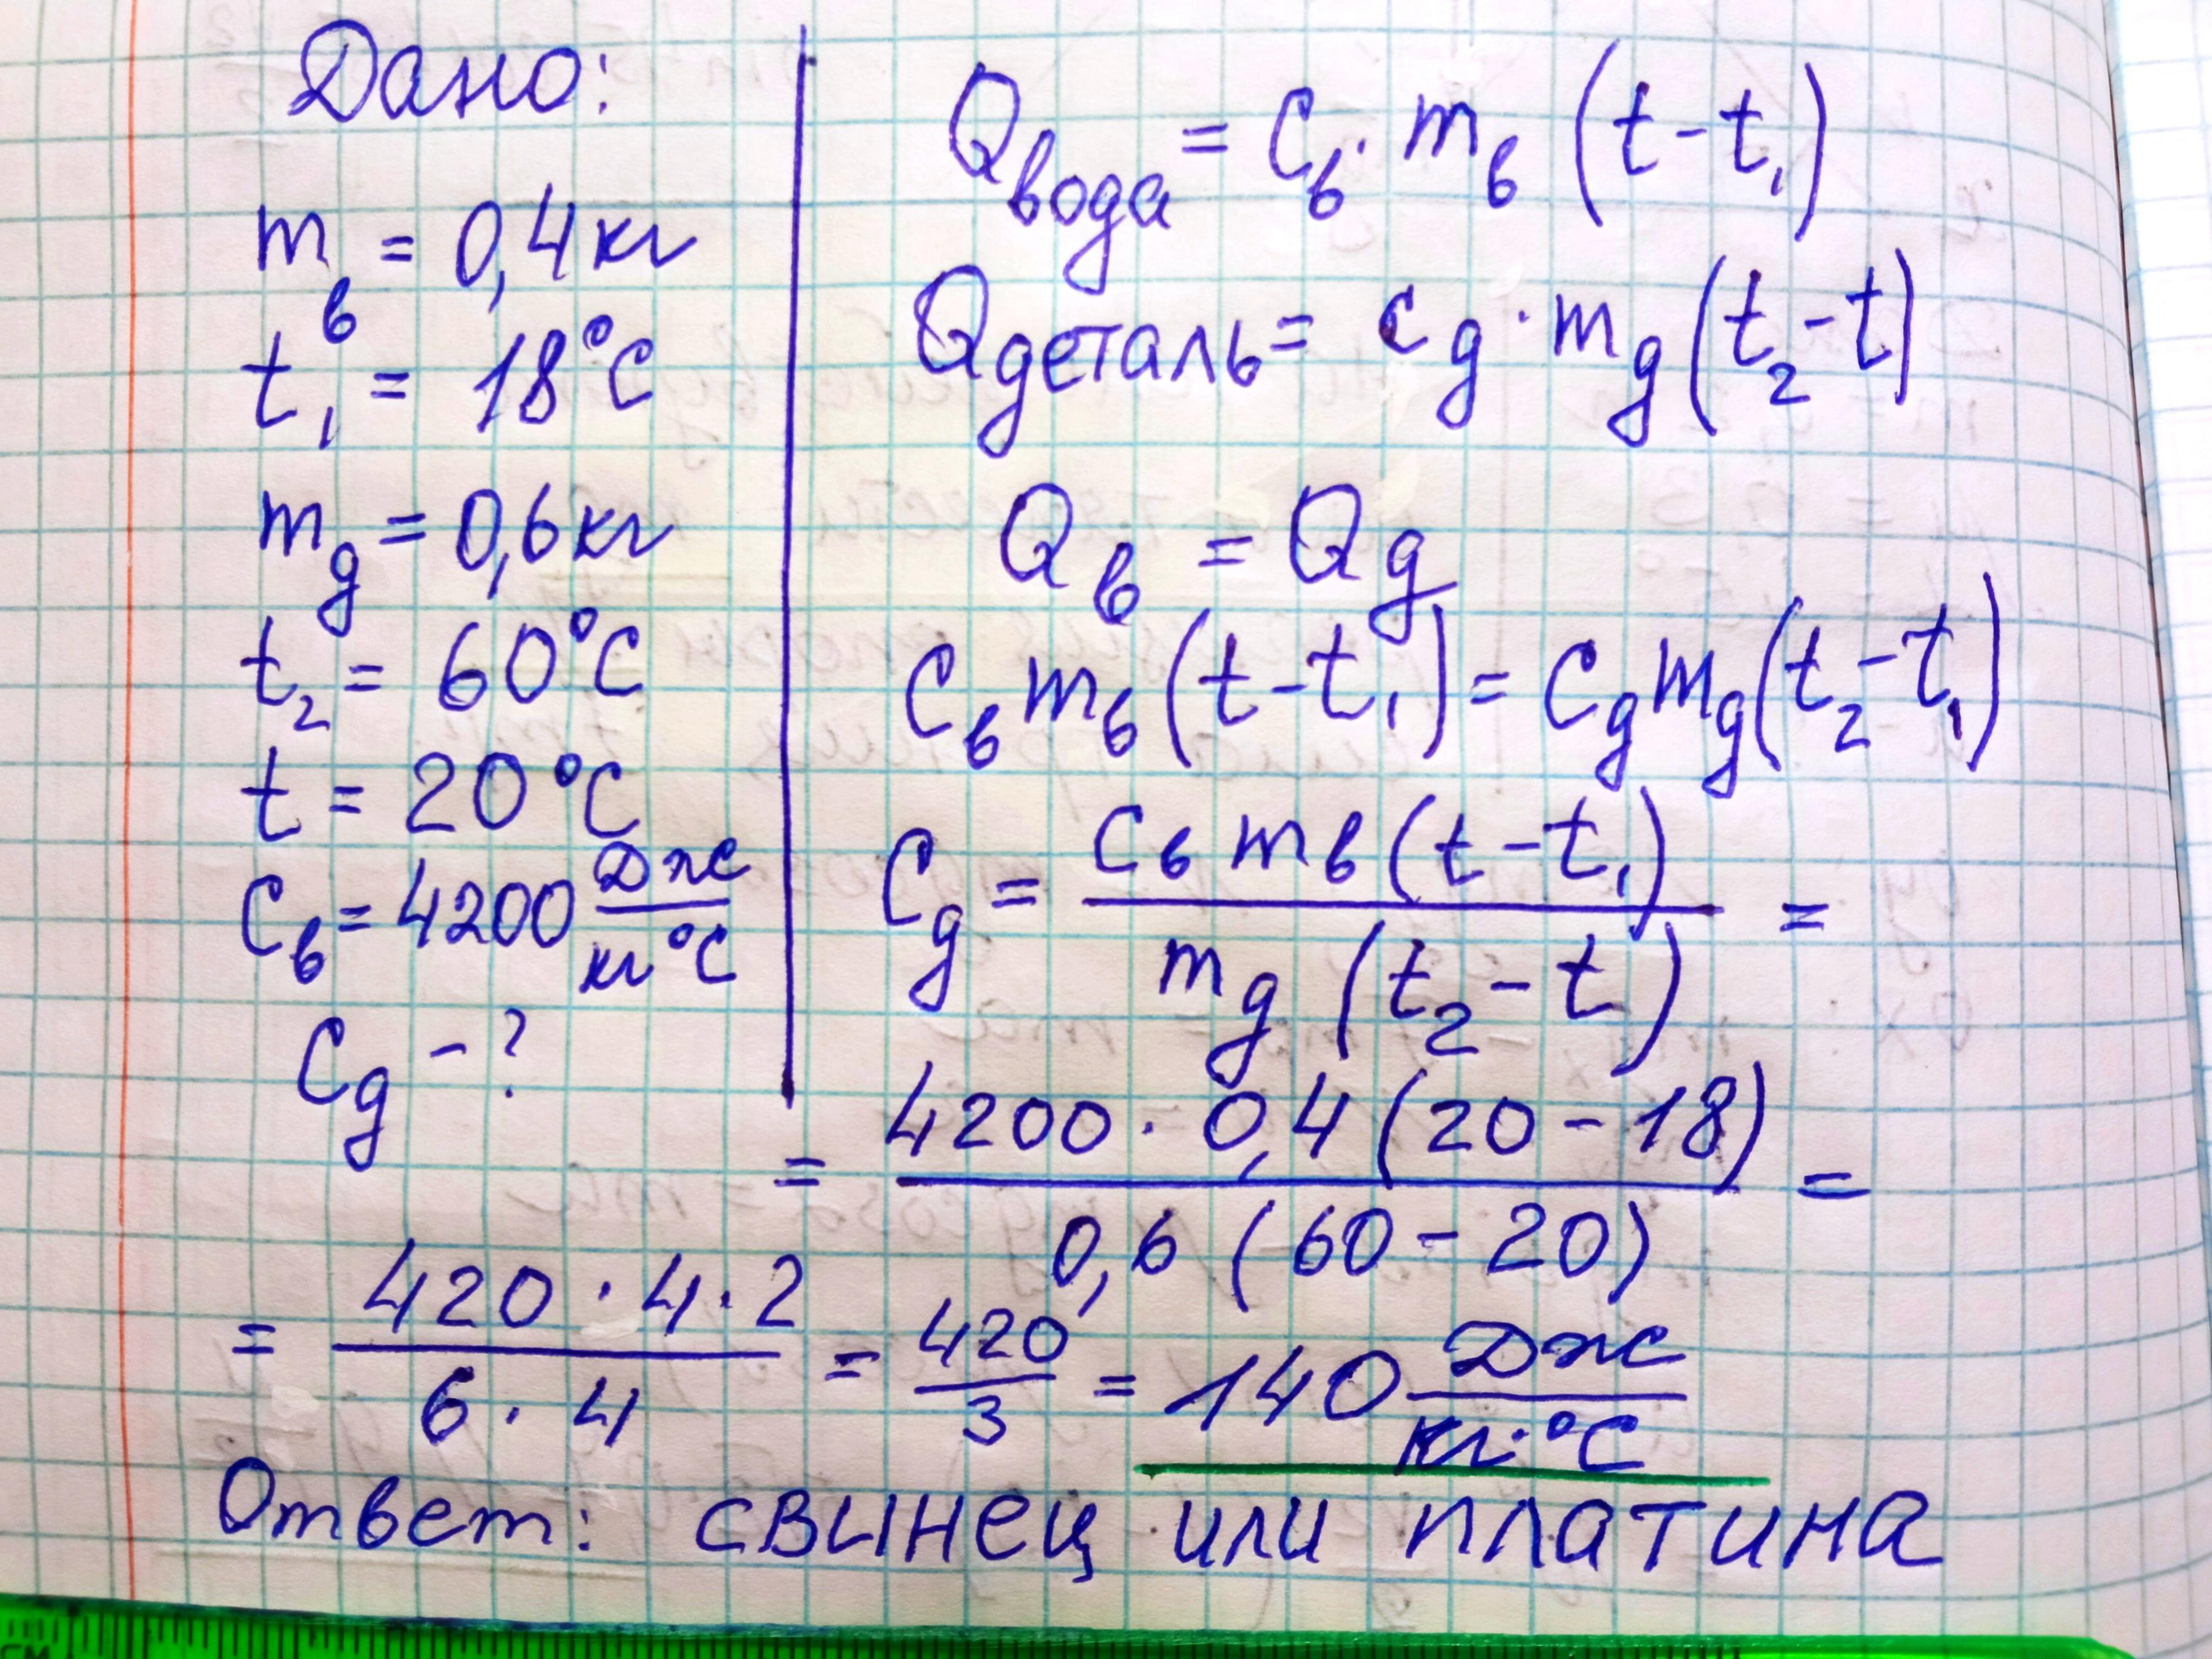 Дано:
mв = 0,4 кг
t₁ = 18°C
mg = 0,6 кг
t₂ = 60°C
t = 20°C
Cв = 4200 Дж/кг°C
Cg - ?
Qвода = Cв · mв (t - t₁)
Qдеталь = cg · mg (t₂ - t)
Qв = Qg
Cв mв (t - t₁) = Cg mg (t₂ - t₁)
Cg = Cв mв (t - t₁) / mg (t₂ - t) =
= 4200 · 0,4 (20 - 18) / 0,6 (60 - 20) =
= 420 · 4 · 2 / 6 · 4 = 420 / 3 = 140 Дж/кг·°C
Ответ: свинец или платина
см